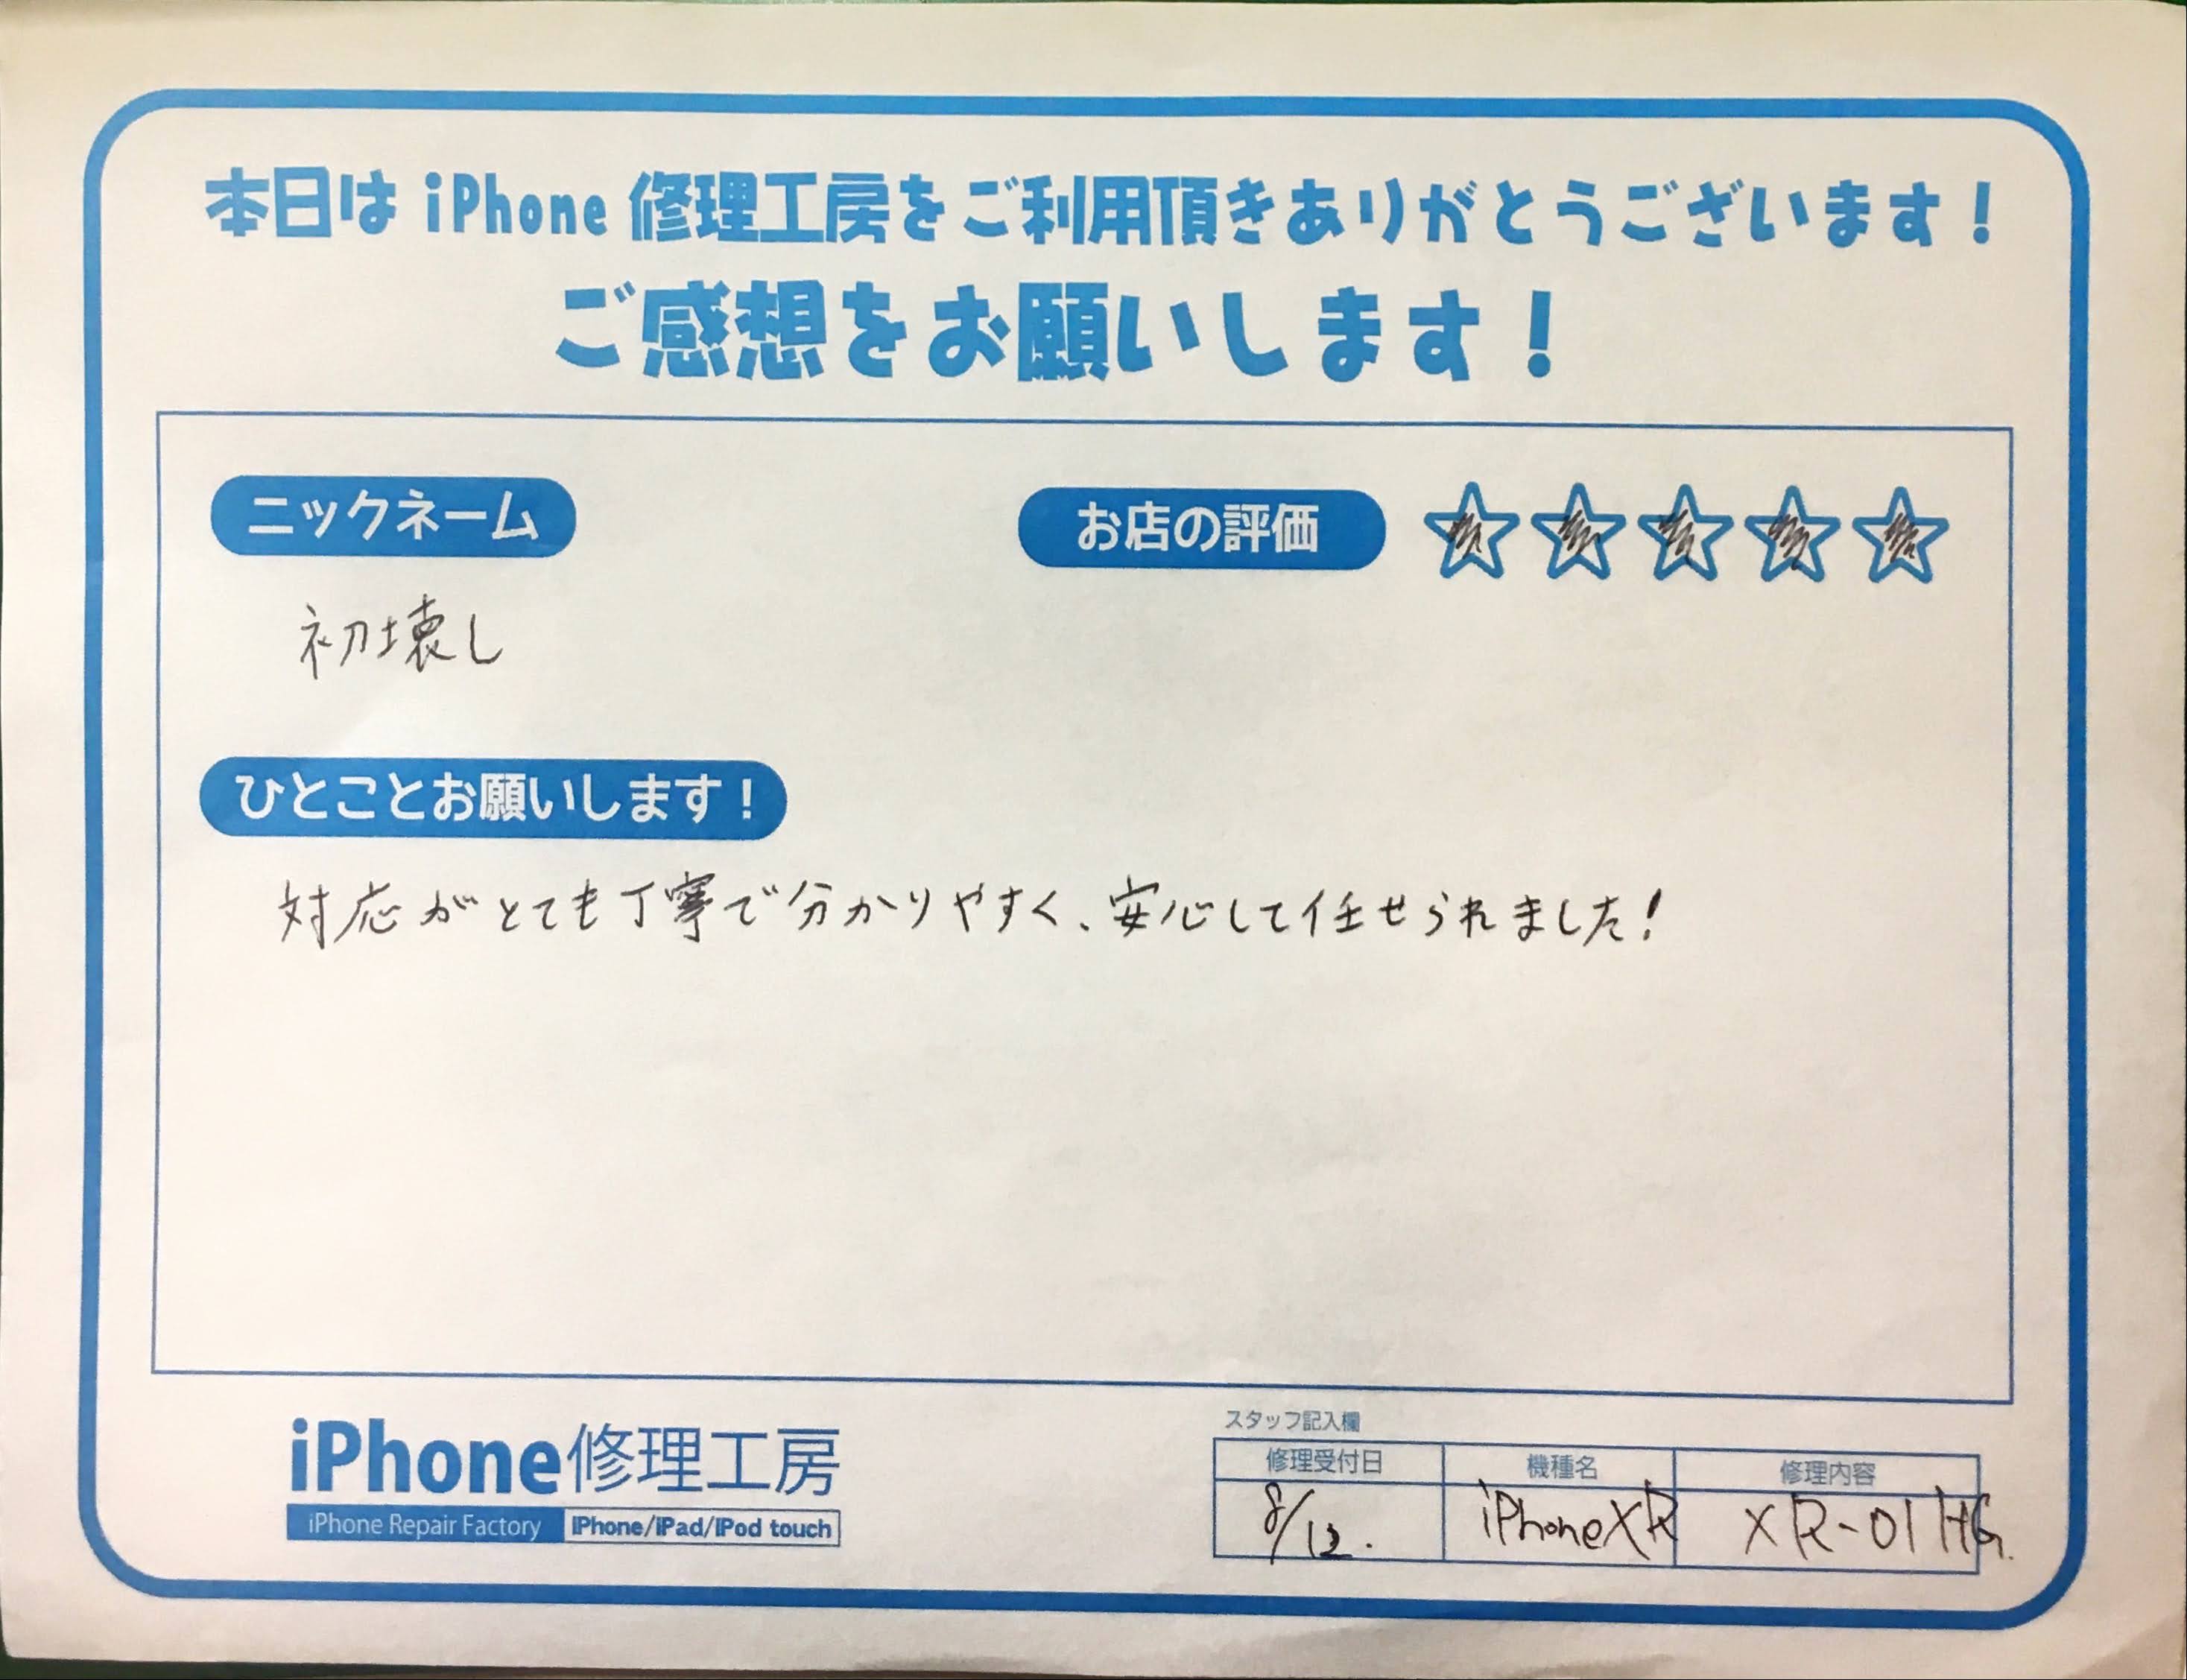 本日は iPhone 修理工房をご利用頂きありがとうございます！
ご感想をお願いします！
ニックネーム
お店の評価
初壊し
ひとことお願いします！
対応がとても丁寧で分かりやすく、安心して任せられました！
iPhone修理工房
iPhone Repair Factory iPhone/iPad/iPod touch
スタッフ記入欄
修理受付日 機種名 修理内容
8/12. iPhoneXR XR-01 HG.